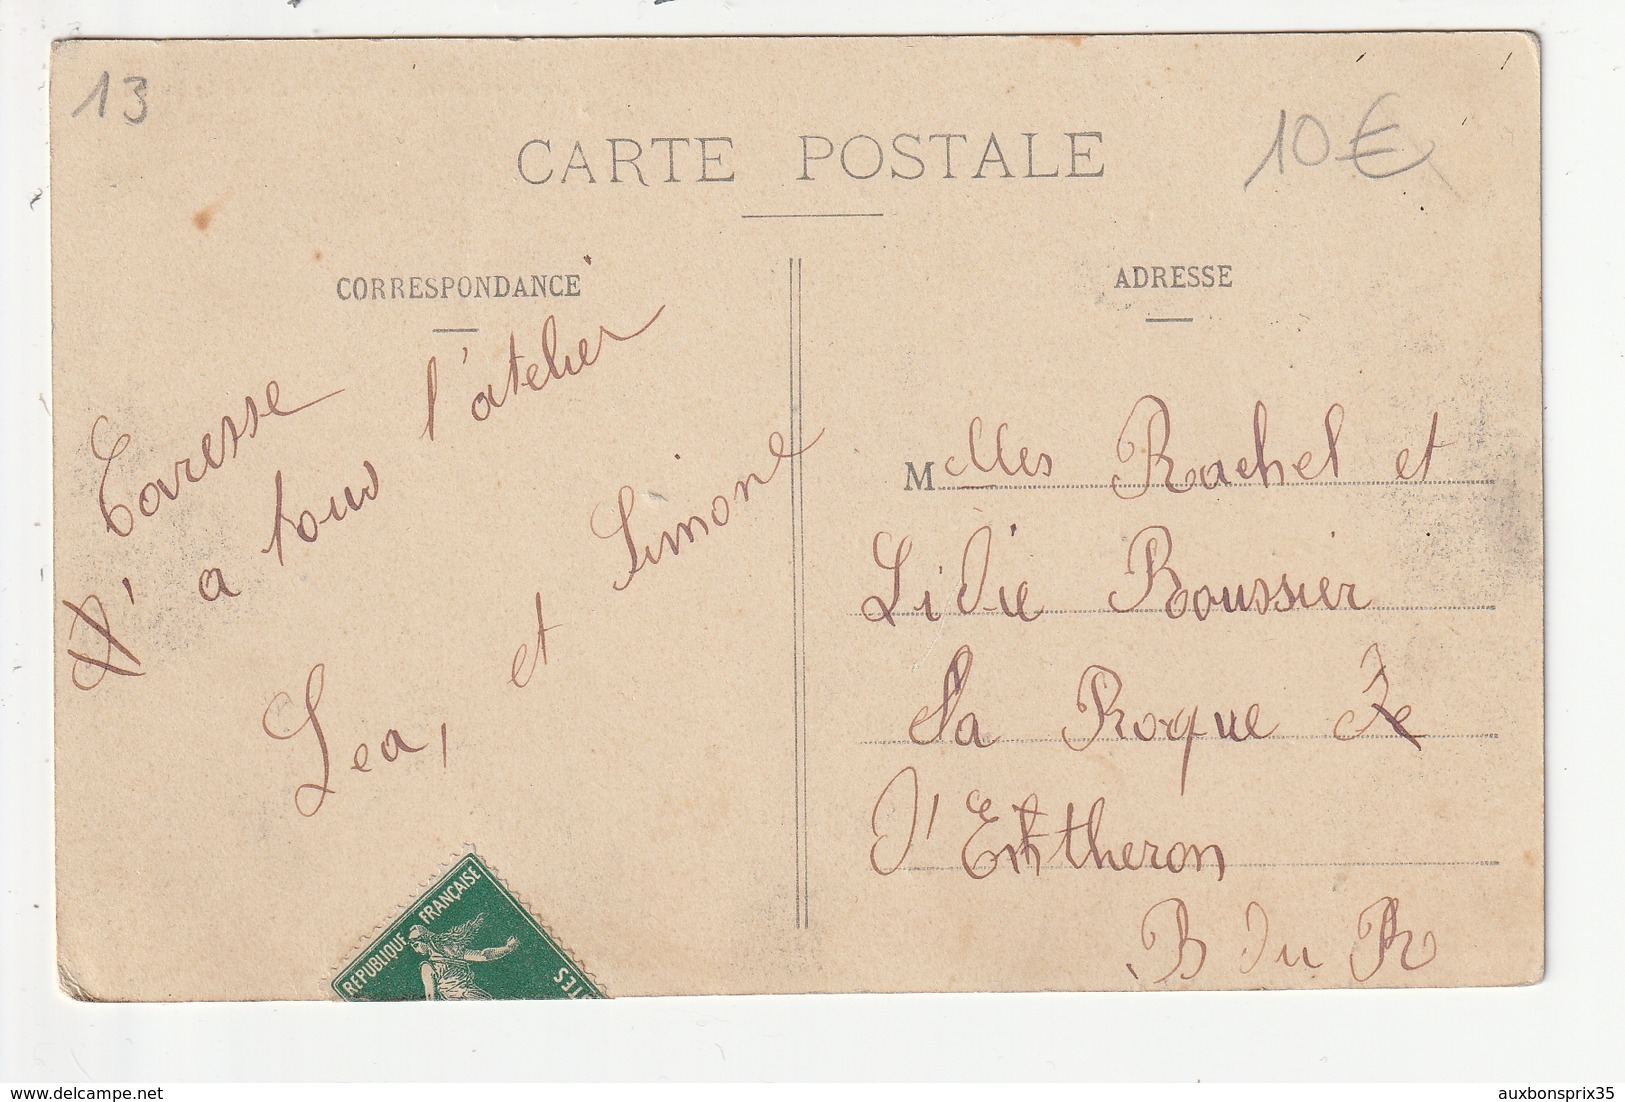 13
10€
CARTE POSTALE
CORRESPONDANCE
Caresse
a tous l'atelier
Lea, et Simone
ADRESSE
Melles Rachel et
Lidie Roussier
La Roque
d'Entheron
B du R
REPUBLIQUE FRANÇAISE
TES
delcampe.net
auxbonsprix35